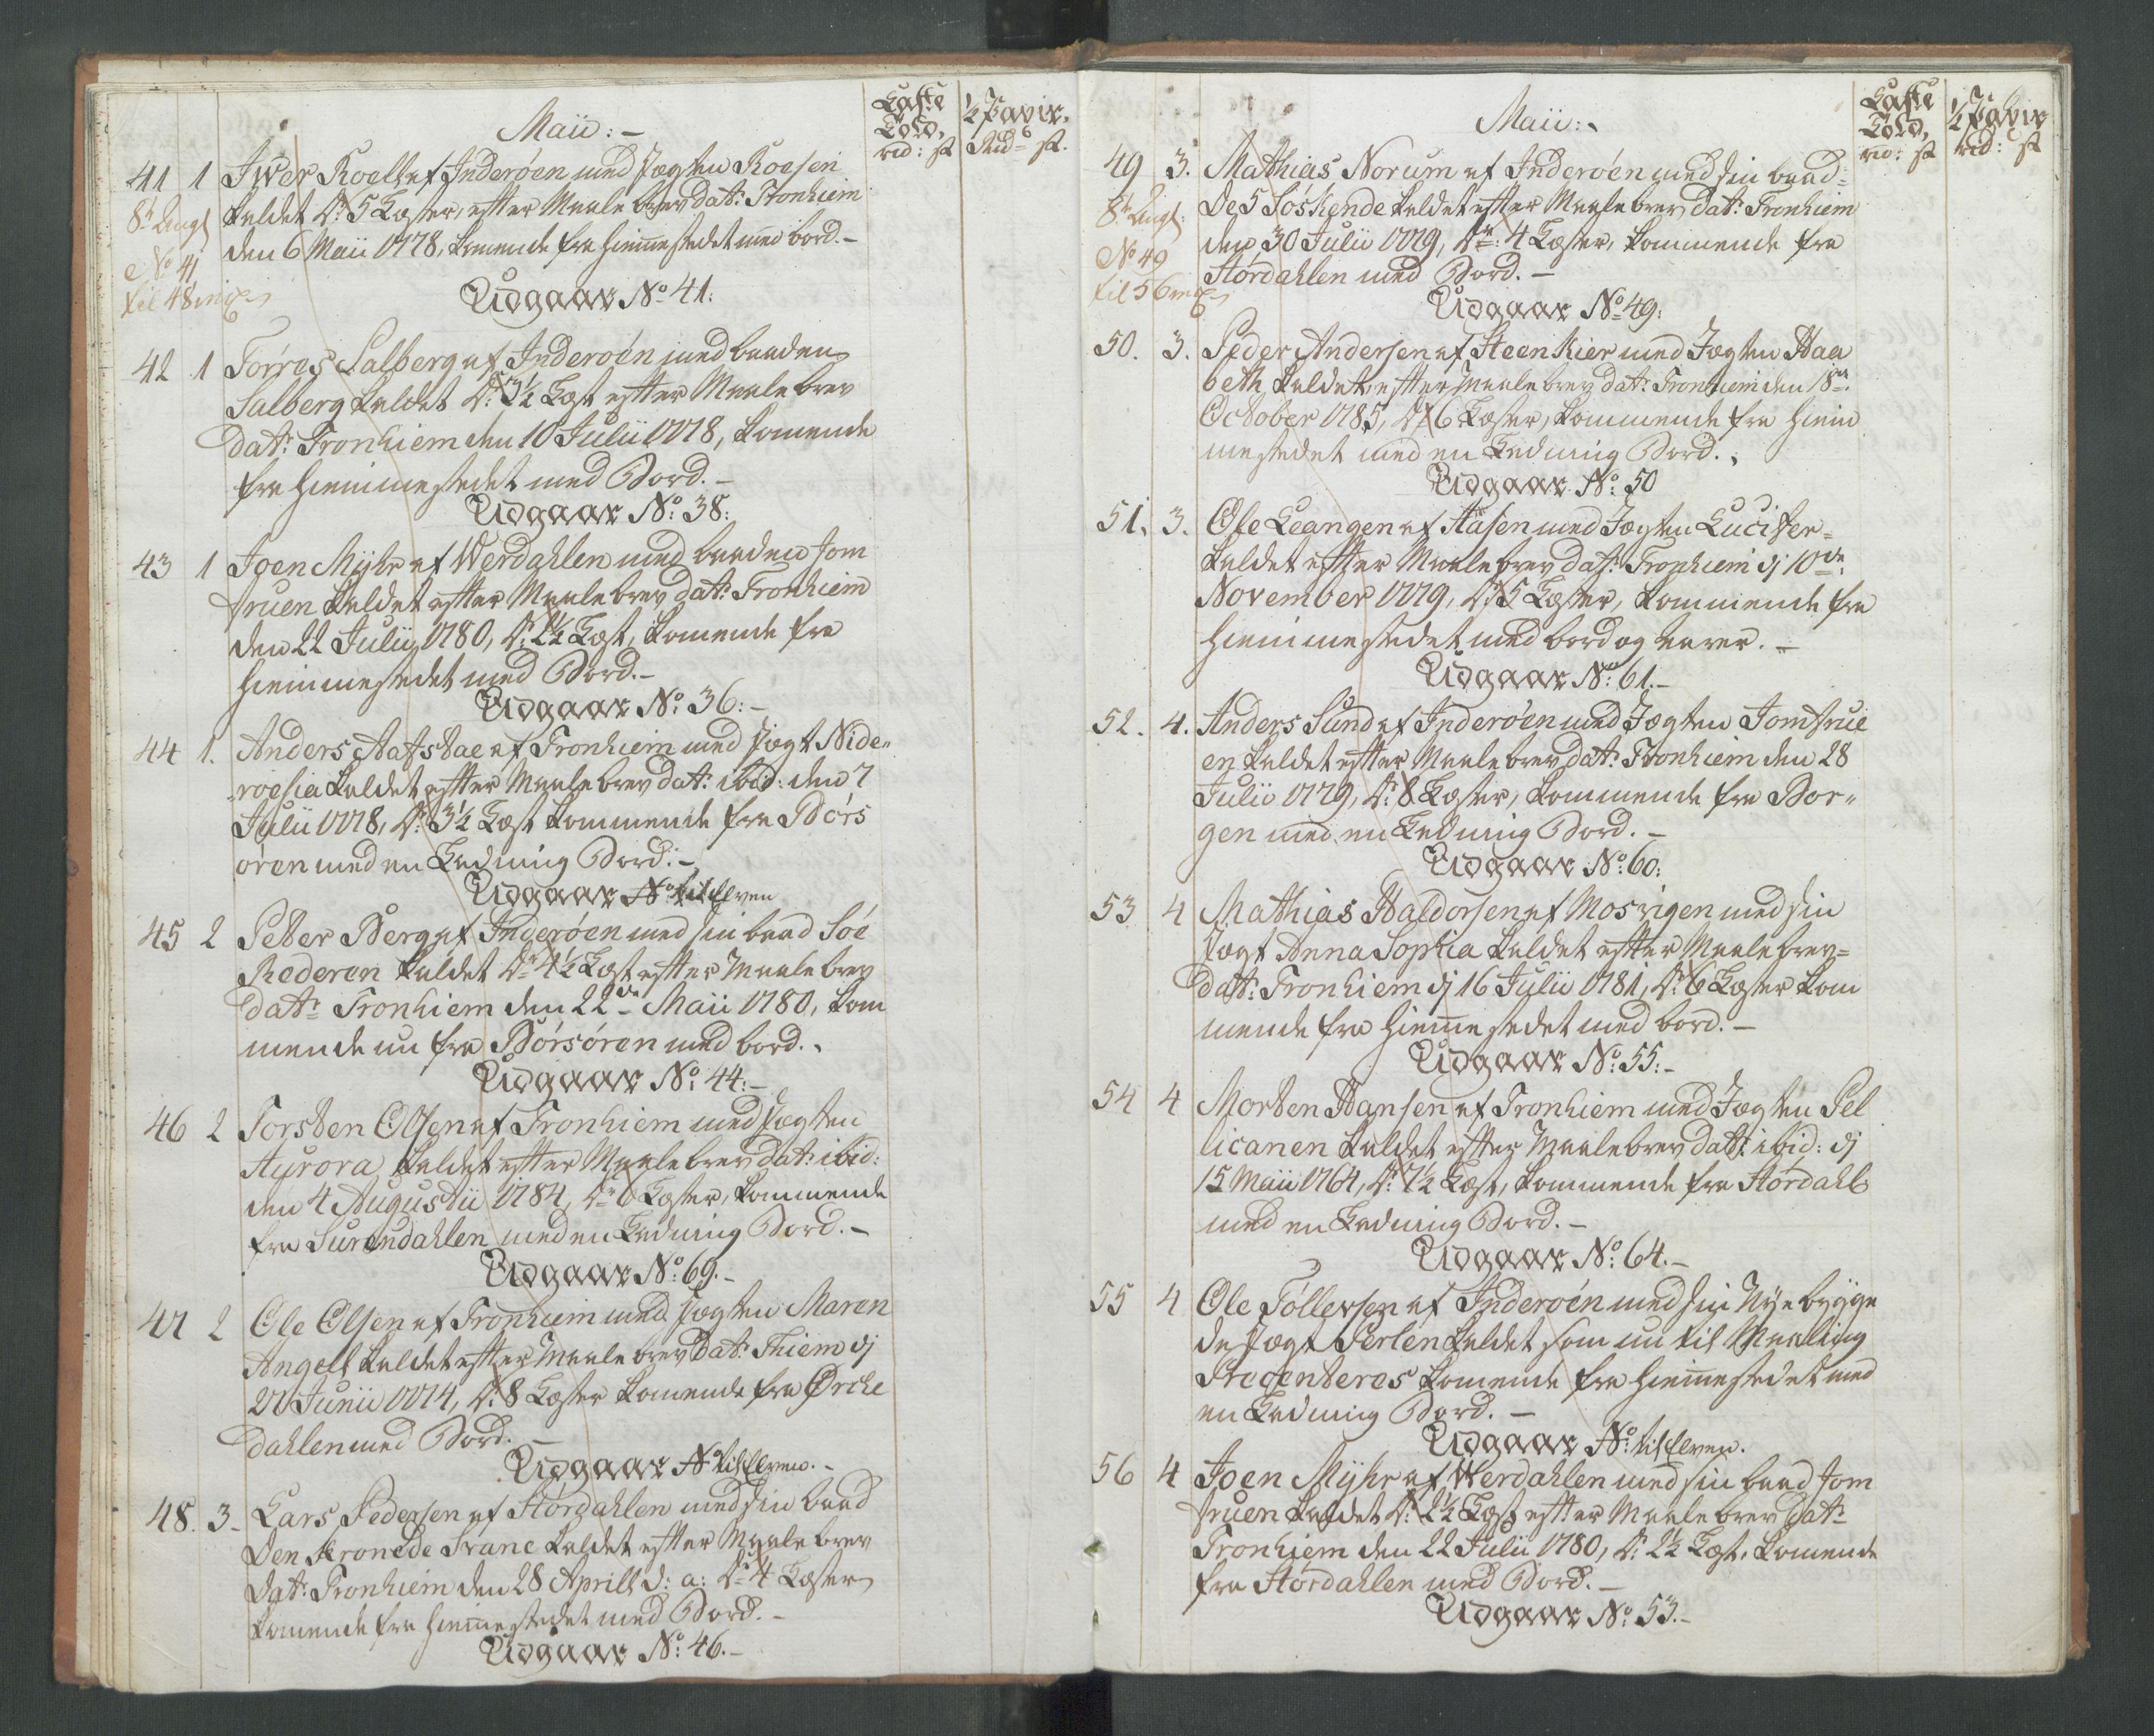 Maii: –
Læste Told, rd: s
½ Pavir. Rd: s.
41 1 Iver Roel af Inderöen med Jagten Roesen
8t Angl kaldet dr: 5 Læster, efter Maalebrev dat: Tronhiem
den 6 Maii 1778, komende fra Hiemmestedet med bord. –
No 41
til 48 incl
Udgaar No 41:
42 1 Torres Salberg af Inderöen med baaden
Salberg kaldet dr: 3½ Læst efter Maalebrev
dat: Tronhiem den 10 Julii 1778, komende
fra Hiemmestedet med Bord. –
Udgaar No: 38:
43 1 Joen Myhr af Werdahlen med baaden Jom
fruen kaldet efter Maalebrev dat: Tronhiem
den 22 Julii 1780, dr: 2½ Læst, komende fra
Hiemmestedet med Bord. –
Udgaar No: 36: –
44 1. Anders Aafstae af Tronhiem med Jagt Nide„
„roesia kaldet efter Maalebrev dat: ibid: den 7
Julii 1778, dr: 3½ Læst kommende fra Börs
ören med en Ladning Bord: –
Udgaar No til Elven
45 2 Peter Berg af Inderöen med sin baad Söe
Rederen kaldet dr 4½ Læst efter Maalebrev
dat: Tronhiem den 22de Maii 1780, kom
mende nu fra Börsören med bord.
Udgaar No: 44: –
46 2 Torsten Olsen af Tronhiem med Jagten
Aurora kaldet efter Maalebrev dat: ibid:
den 4 Augustii 1784, dr 6 Læster, kommende
fra Surendahlen med en Ladning Bord. –
Udgaar No: 69. –
47 2 Ole Olsen af Tronhiem med Jagten Maren
Angell kaldet efter Maalebrev dat: Thiem dj
27 Junii 1774, dr: 8 Læster komende fra Orche
dahlen med Bord. –
Udgaar No til Elven. –
48. 3. Lars Pedersen af Stördahlen med sin baad
den kronede Svane kaldet efter Maalebrev
dat: Tronhiem den 28 Aprill d: a: dr 4 Læster
komende fra Hiemmestedet med Bord. –
Udgaar No: 46. –
Maii:
Læste Told, rd: s
½ Pavir rd: s
49 3. Mathias Norum af Inderöen med sin baad
8t Angl: De 5 Söskende kaldet efter Maalebrev dat: Tronhiem
den 30 Julii 1779, dr: 4 Læster, kommende fra
No 49
til 56 incl
Stördahlen med Bord. –
Udgaar No 49:
50. 3. Peder Andersen af Steenkier med Jagten Haa
beth kaldet, efter Maalebrev dat: Tronhiem den 18de
October 1785, dr 6 Læster, kommende fra Hiem
mestedet med en Ladning Bord.
Udgaar No: 50
51. 3. Ole Leangen af Aasen med Jagten Lucifer
kaldet efter Maalebrev dat: Tronhiem dj 10de
November 1779, dr 5 Læster, kommende fra
Hiemmestedet med bord og varer. –
Udgaar No: 61. –
52. 4. Anders Sund af Inderöen med Jagten Jomfrue
en kaldet efter Maalebrev dat: Tronhiem den 28
Julii 1779, dr: 8 Læster, kommende fra Bor„
gen med en Ladning Bord. –
Udgaar No: 60:
53 4 Mathias Haldorsen af Mosvigen med sin
Jagt Anna Sophia kaldet efter Maalebrev
dat: Tronhiem dj 16 Julii 1781, dr: 6 Læster kom
mende fra Hiemmestedet med bord. –
Udgaar No: 55: –
54 4 Morten Hansen af Tronhiem med Jagten Pel
licanen kaldet efter Maalebrev dat: ibid: dj
15 Maii 1764, dr: 7½ Læst, kommende fra Stördahl:
med en Ladning Bord. –
Udgaar No: 64. –
55 4 Ole Töllersen af Inderöen med sin Nye bygge
de Jagt Perlen kaldet som nu til Maaling
Presenteres komende fra Hiemmestedet med
en Ladning Bord. –
Udgaar No: til Elven.
56 4 Joen Myhr af Werdahlen med sin baad Jom
fruen kaldet dr: 2½ Læst efter Maalebrev dat:
Tronhiem den 22 Julii 1780, dr 2½ Læst, komende
fra Stördahlen med Bord. –
Udgaar No: 53. –